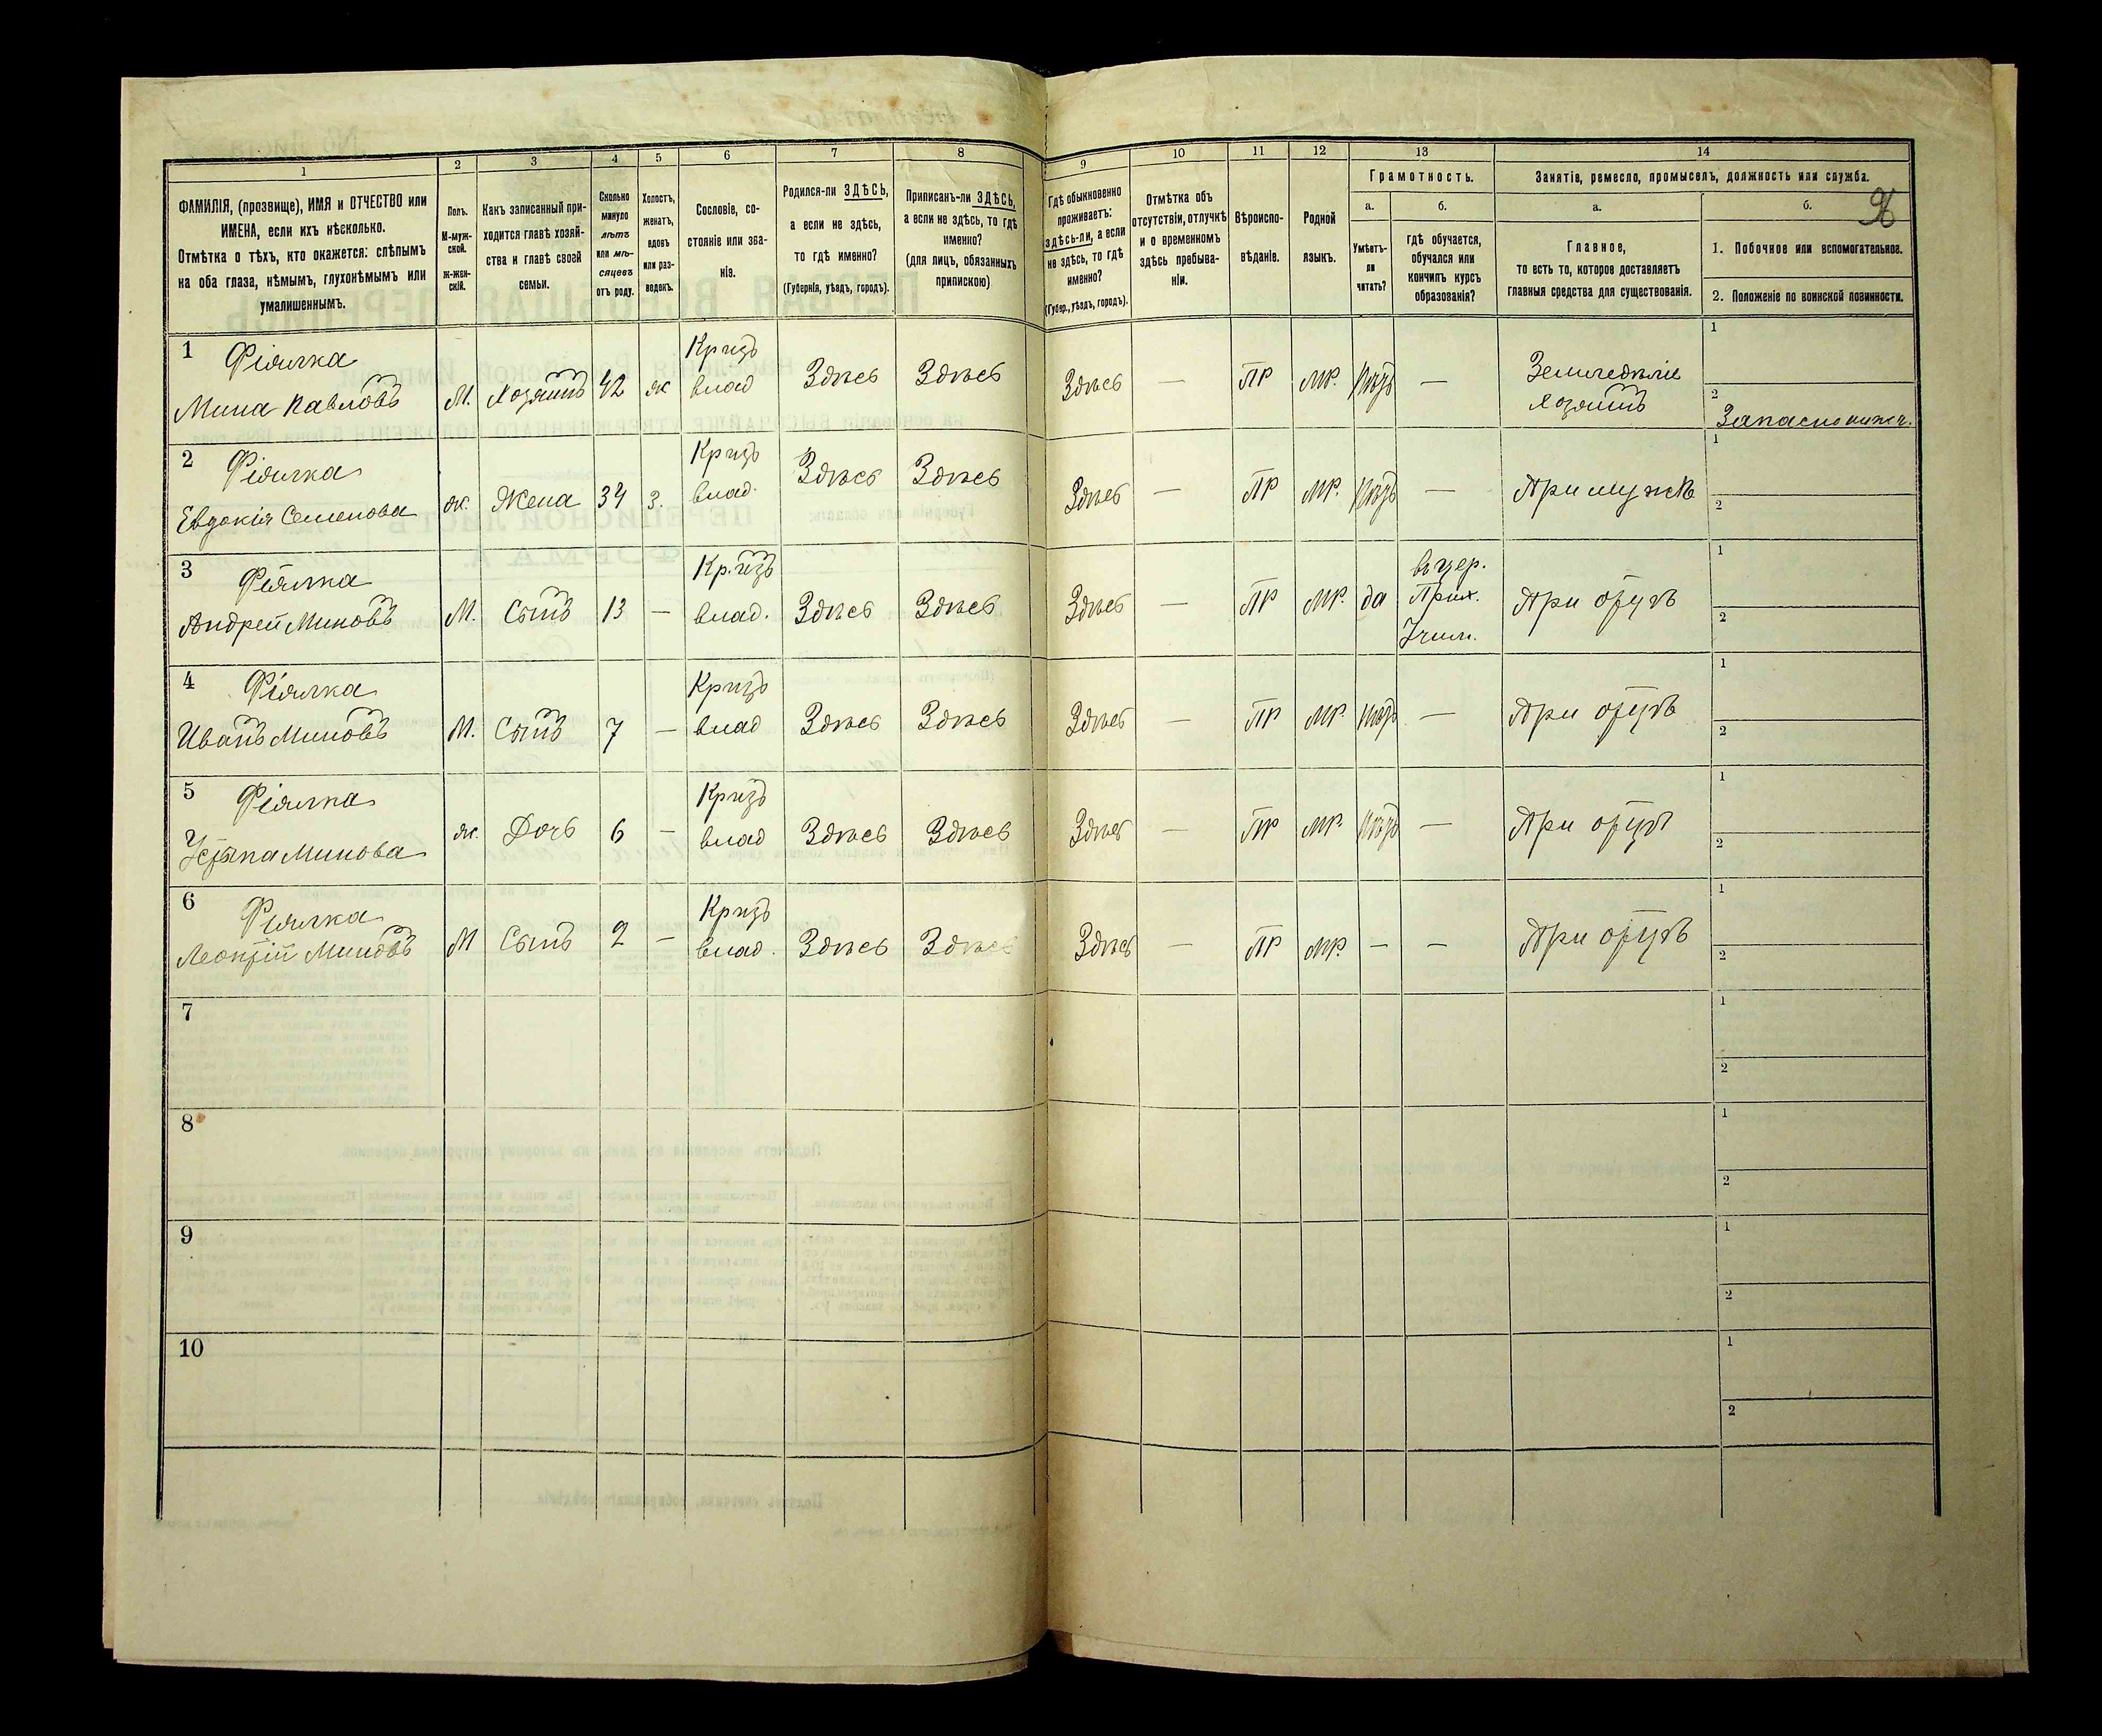 1
2
3
4
5
6
7
8
9
10
11
12
13
14
ФАМИЛІЯ, (прозвище), ИМЯ и ОТЧЕСТВО или
ИМЕНА, если ихъ нѣсколько.
Отмѣтка о тѣхъ, кто окажется: слѣпымъ
на оба глаза, нѣмымъ, глухонѣмымъ или
умалишеннымъ.
Полъ.
М-муж-
ской.
Ж-жен-
скій.
Какъ записанный при-
ходится главѣ хозяй-
ства и главѣ своей
семьи.
Сколько
минуло
лѣтъ
или мѣ-
сяцевъ
отъ роду.
Холостъ,
женатъ,
вдовъ
или раз-
веденъ.
Сословіе, со-
стояніе или зва-
ніе.
Родился-ли ЗДѢСЬ,
а если не здѣсь,
то гдѣ именно?
(Губернія, уѣздъ, городъ).
Приписанъ-ли ЗДѢСЬ,
а если не здѣсь, то гдѣ
именно?
(для лицъ, обязанныхъ
припискою)
Гдѣ обыкновенно
проживаетъ:
здѣсь-ли, а если
не здѣсь, то гдѣ
именно?
(Губер., уѣздъ, городъ).
Отмѣтка объ
отсутствіи, отлучкѣ
и о временномъ
здѣсь пребыва-
ніи.
Вѣроиспо-
вѣданіе.
Родной
языкъ.
Грамотность.
а.
Умѣетъ-
ли
читать?
б.
Гдѣ обучается,
обучался или
кончилъ курсъ
образованія?
Занятіе, ремесло, промыселъ, должность или служба.
а.
Главное,
то есть то, которое доставляетъ
главныя средства для существованія.
б.
96
1. Побочное или вспомогательное.
2. Положеніе по воинской повинности.
1 Фіялка
Мина Павловъ М. Хозяинъ 42 ж Кр. изъ влад Здѣсь Здѣсь Здѣсь — ПР МР. Нѣтъ — Земледѣліе Хозяинъ
1
2 Запасно нижн.
2 Фіялка
Евдокія Семенова ж. Жена 34 з. Кр изъ влад. Здѣсь Здѣсь Здѣсь — ПР МР. Нѣтъ — При мужѣ
1
2
3 Фіялка
Андрей Миновъ М. Сынъ 13 — Кр. изъ влад. Здѣсь Здѣсь Здѣсь — ПР МР. да въ цер. Прих. Учил. При отцѣ
1
2
4 Фіялка
Иванъ Миновъ М. Сынъ 7 — Кр изъ влад Здѣсь Здѣсь Здѣсь — ПР МР. Нѣтъ — При отцѣ
1
2
5 Фіялка
Устина Минова ж. Дочь 6 — Кр изъ влад Здѣсь Здѣсь Здѣсь — ПР МР. Нѣтъ — При отцѣ
1
2
6 Фіялка
Леонтій Миновъ М Сынъ 2 — Кр изъ влад. Здѣсь Здѣсь Здѣсь — ПР МР. — — При отцѣ
1
2
7
1
2
8
1
2
9
1
2
10
1
2